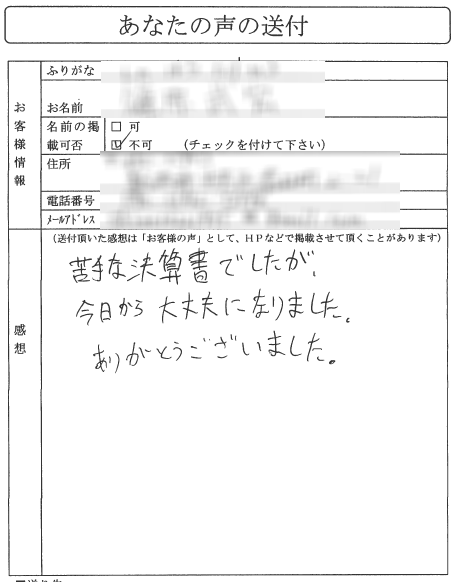 あなたの声の送付
お客様情報
ふりがな
お名前
名前の掲載可否
□ 可
☑ 不可 (チェックを付けて下さい)
住所
電話番号
ﾒｰﾙｱﾄﾞﾚｽ
感想
(送付頂いた感想は「お客様の声」として、HPなどで掲載させて頂くことがあります)
苦手な決算書でしたが、
今日から大丈夫になりました。
ありがとうございました。